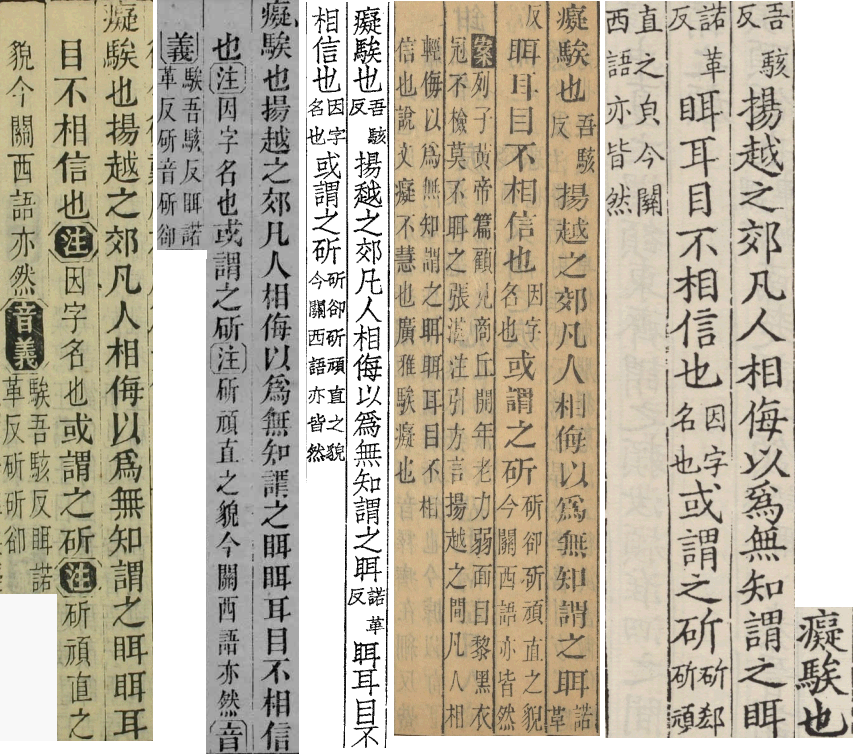 癡騃也
吾駭反揚越之郊凡人相侮以爲無知謂之眲
諾革反眲耳目不相信也因字名也或謂之斫斫郄斫頑
直之皃今關西語亦皆然
癡騃也吾駭反揚越之郊凡人相侮以爲無知謂之眲諾革
反眲耳目不相信也因字名也或謂之斫斫卻斫頑直之貌今關西語亦皆然
案列子黃帝篇顧見商丘開年老力弱面目黎黑衣
冠不檢莫不眲之張湛注引方言揚越之間凡人相
輕侮以爲無知謂之眲眲耳目不相
信也說文癡不慧也廣雅騃癡也
癡騃也吾駭反揚越之郊凡人相侮以爲無知謂之眲諾革反眲耳目不
相信也因字名也或謂之斫斫卻斫頑直之貌今關西語亦皆然
癡騃也揚越之郊凡人相侮以爲無知謂之眲眲耳目不相信
也注因字名也或謂之斫注斫頑直之貌今關西語亦皆然音
義騃吾駭反眲諾革反斫音斫卻
癡騃也揚越之郊凡人相侮以爲無知謂之眲眲耳
目不相信也注因字名也或謂之斫注斫頑直之
貌今關西語亦皆然音義騃吾駭反眲諾革反斫斫卻